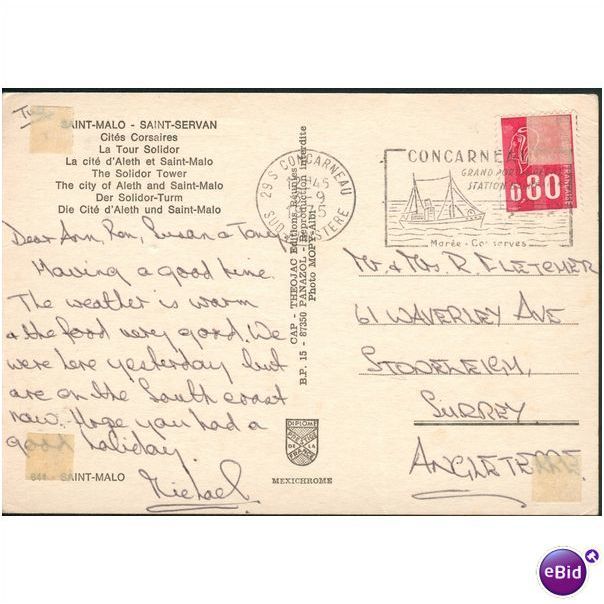 SAINT-MALO - SAINT-SERVAN
Cités Corsaires
La Tour Solidor
La cité d'Aleth et Saint-Malo
The Solidor Tower
The city of Aleth and Saint-Malo
Der Solidor-Turm
Die Cité d'Aleth und Saint-Malo
Dear Ann, Ron, Susan &
Having a good time.
The weather is warm
& the food very good. We
were here yesterday but
are on the South coast
now. Hope you had a
good holiday.
Michael
SAINT-MALO
CAP - THEOJAC Editions Réunies
B.P. 15 - 87350 PANAZOL - Reproduction interdite
Photo MOPY-AIDI
DIPLOME
PRESTIGE
DE LA
FRANCE
MEXICHROME
29 S CONCARNEAU
45
-9
SUD FINISTERE
CONCARNEA
GRAND PORT
STATION
Marée - Conserves
0,80
FRANÇAISE
Mr. & Mrs. R. FLETCHER
61 WAVERLEY AVE
STONELEIGH,
SURREY
ANGLETERRE
eBid